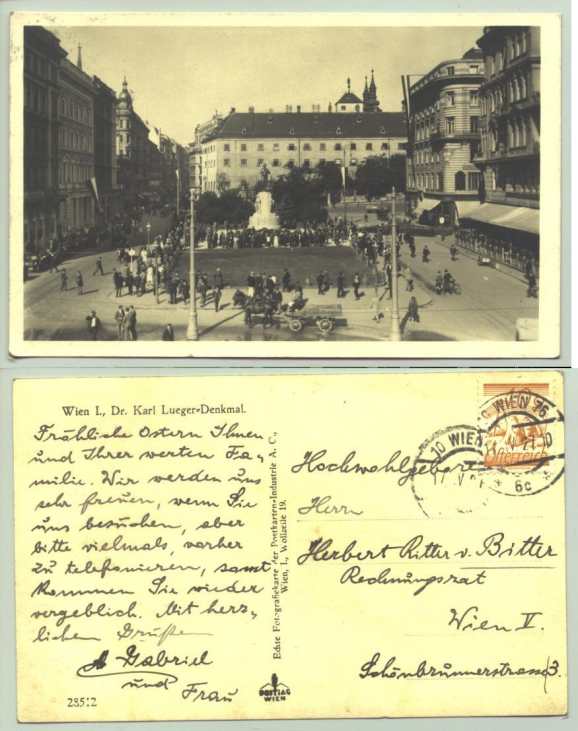 Wien I., Dr. Karl Lueger-Denkmal.
Fröhliche Ostern Ihnen
und Ihrer werten Fa-
milie. Wir werden uns
sehr freuen, wenn Sie
uns besuchen, aber
bitte vielmals, vorher
zu telefonieren, sonst
kommen Sie wieder
vergeblich. Mit herz-
lichen Grüßen
A Gabriel
und Frau
28512
Echte Fotografiekarte der Postkarten-Industrie A. G.,
Wien, I., Wollzeile 19.
POSTIAG
WIEN
WIEN 76
10 WIEN
6c
Österreich
Hochwohlgeboren
Herrn
Herbert Ritter v. Bitter
Rechnungsrat
Wien V.
Schönbrunnerstrasse 3.